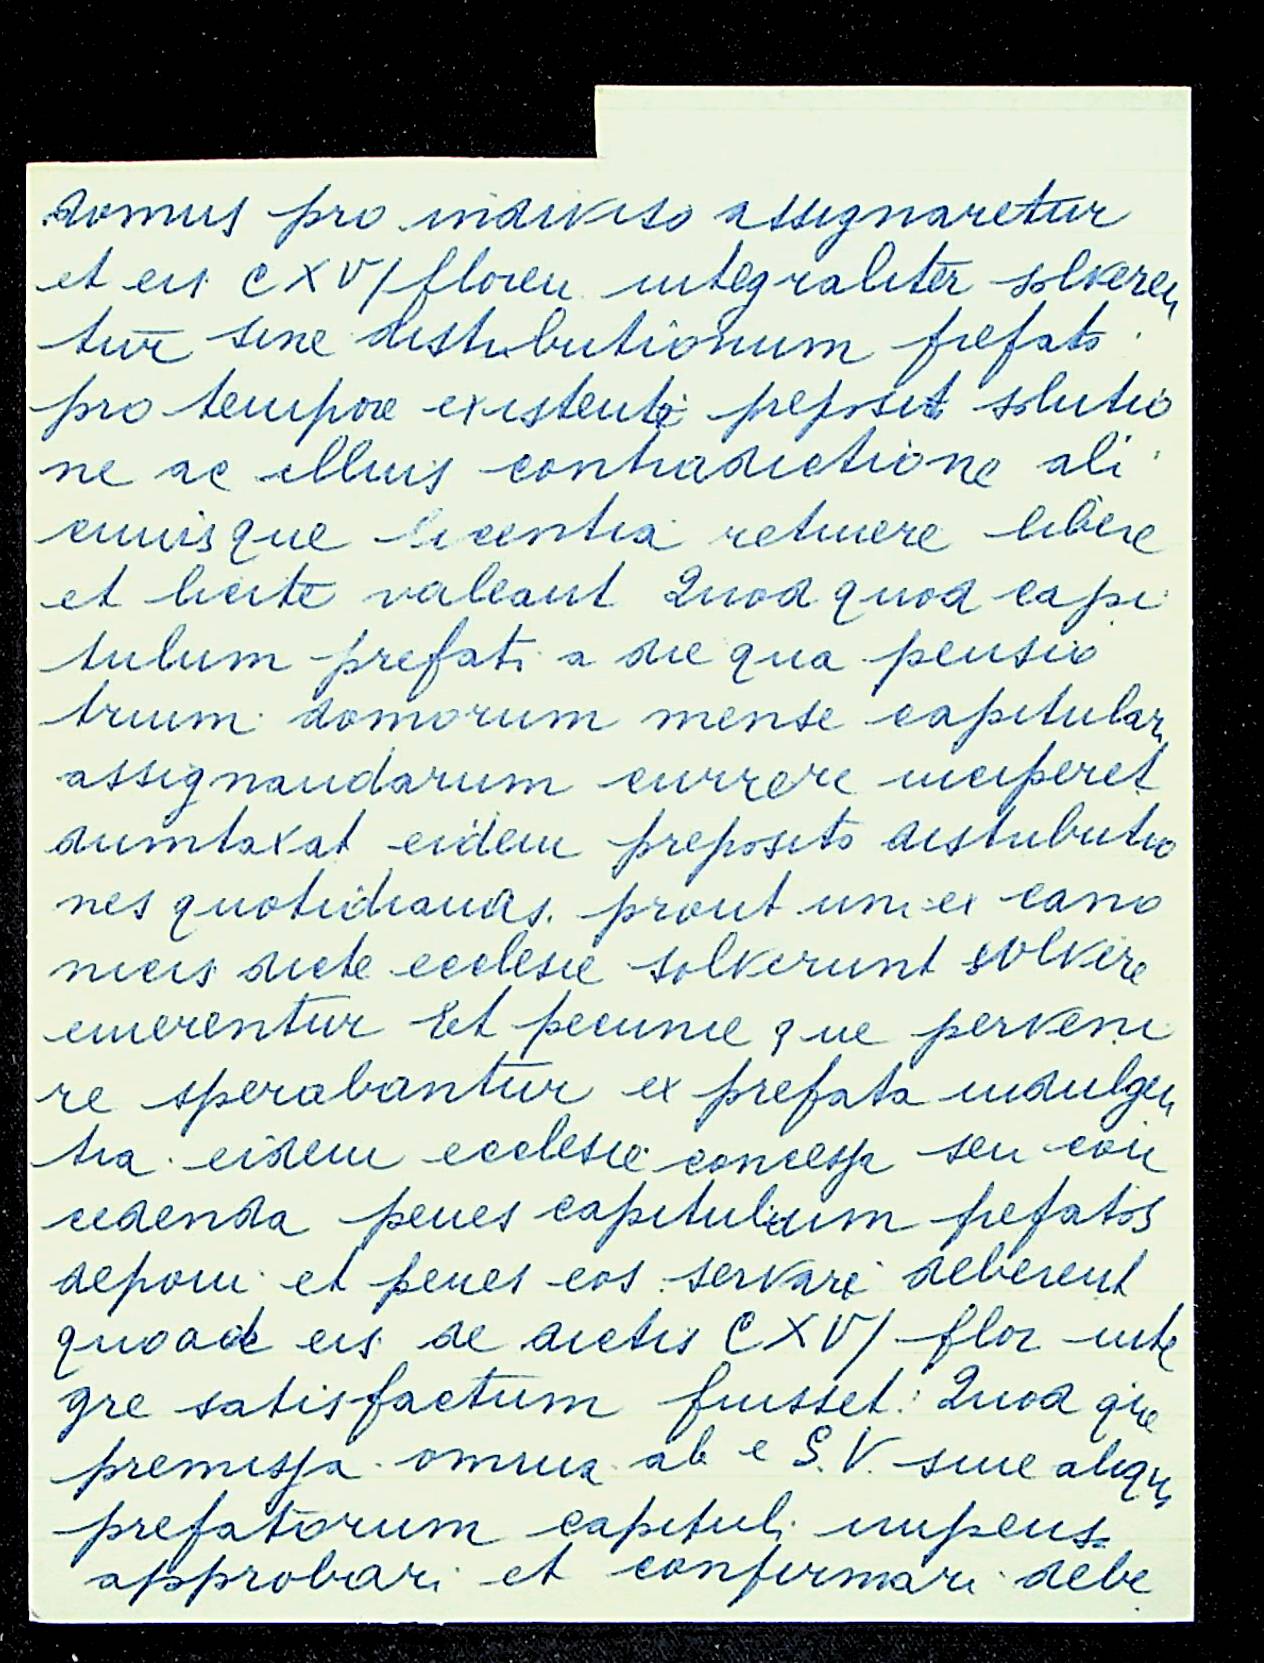 domus pro indiviso assignaretur
et eis CXVJ floren integraliter solveren
tur sine distributionum prefato
pro tempore existenti preposit solutio
ne ac illius contradictione ali
cuiusque licentia retinere libere
et licite valeant Quod quod capi
tulum prefati a die qua pensio
trium domorum mense capitulari
assignandarum currere inciperet
dumtaxat eidem preposito distributio
nes quotidianas. prout uni ex cano
nicis dicte ecclesie solverunt solvere
Et pecunie que perveni
re sperabantur ex prefata indulgen
tia eidem ecclesie concessa seu con
cedenda penes capitulum prefatos
deponi et penes eos servari deberent
quoad eis de dictis CXVJ flor inte
gre satisfactum fuisset. Quod que
premissa omnia ab e S.V. sine aliqu
prefatorum capituli impens
approbari et confirmari debe